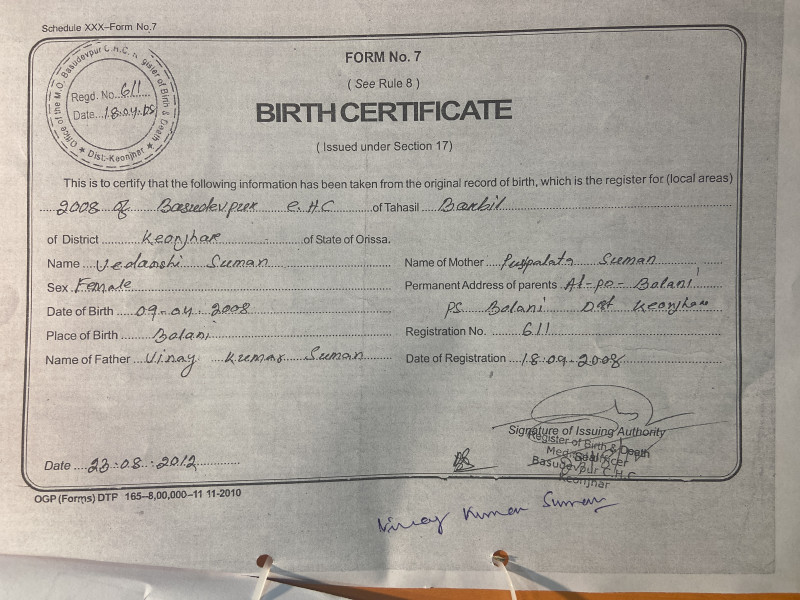 Schedule XXX–Form No.7
Office of the M.O. Basudevpur C.H.C. Register of Birth & Death
Regd. No..611
Date...18.04.08
Dist.-Keonjhar
FORM No. 7
( See Rule 8 )
BIRTH CERTIFICATE
( Issued under Section 17)
This is to certify that the following information has been taken from the original record of birth, which is the register for (local areas)
2008 of Basudevpur C.H.C of Tahasil Barbil
of District Keonjhar of State of Orissa.
Name Vedanshi Suman
Sex Female
Date of Birth 09-04-2008
Place of Birth Bolani
Name of Father Vinay Kumar Suman
Name of Mother Puspalata Suman
Permanent Address of parents At-po- Bolani
PS Bolani Dist Keonjhar
Registration No. 611
Date of Registration 18.04.2008
Signature of Issuing Authority
Register of Birth & Death
Medical Officer
Basudevpur C.H.C
Keonjhar
Date 23.08.2012
OGP (Forms) DTP 165–8,00,000–11 11-2010
Vinay Kumar Suman